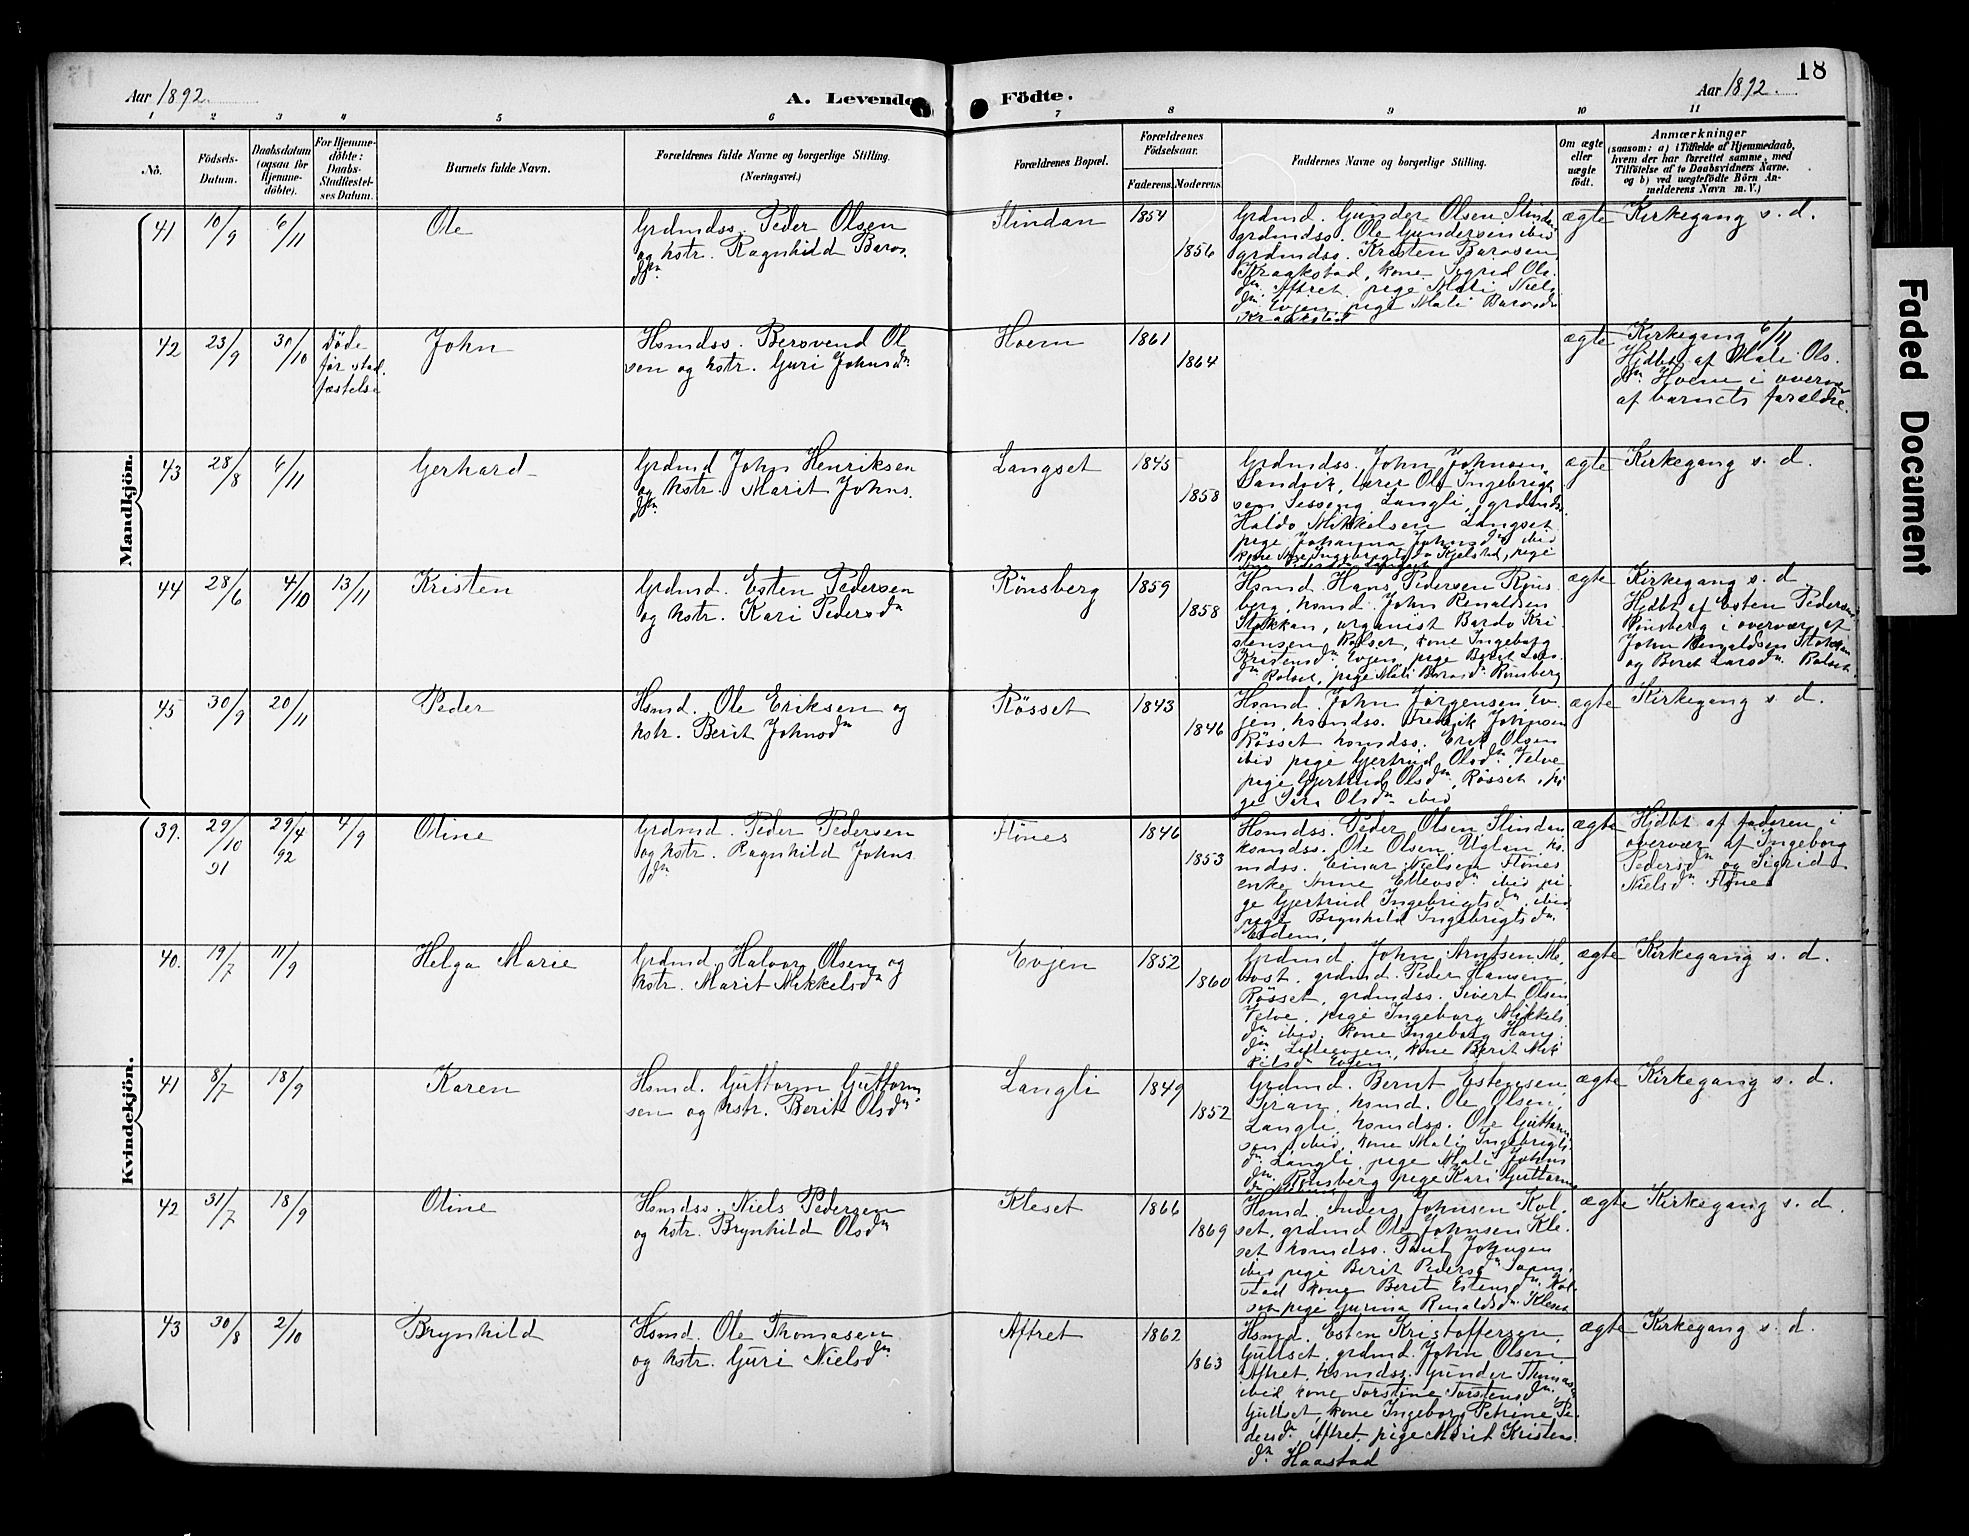 18
Aar 1892
A. Levende Födte.
Aar 1892
1 2 3 4 5 6 7 8 9 10 11
No.
Födsels-Datum.
Daabsdatum (ogsaa for Hjemme-döbte).
For Hjemme-döbte: Daabs-Stadfæstel-ses Datum.
Barnets fulde Navn.
Forældrenes fulde Navne og borgerlige Stilling.
(Næringsvei.)
Forældrenes Bopæl.
Forældrenes Födselsaar.
Faderens. Moderens.
Faddernes Navne og borgerlige Stilling.
Om ægte eller uægte födt.
Anmærkninger
(saasom: a) i Tilfælde af Hjemmedaab,
hvem der har forrettet samme, med
Tilföielse af to Daabsvidners Navne.
og b) ved uægtefödte Börn An-
melderens Navn m. V.)
Mandkjön.
41 10/9 6/11 Ole
Grdmdss. Peder Olsen
og kstr. Ragnhild Baros.
dtr.
Slindan 1854 1856
Grdmd. Gunder Olsen Slindan
grdmdss. Ole Gundersen ibid
grdmdss. Kristen Barosen
Kraakstad, kone Sigrid Ols.
dtr. Aftret, pige Mali Niels
dtr. Evjen, pige Mali Barosdtr
Kraakstad
ægte Kirkegang s. d.
42 23/9 30/10 Döde
før stad.
fæstelse
John
Hsmdss. Berovend Ol
sen og kstr. Guri Johnsdtr.
Hoem 1861 1864
ægte Kirkegang 6/11
Hjdbt af Mali Ols.
dtr. Hoem i overvær
af barnets forældre.
43 28/8 6/11 Gerhard
Grdmd John Henriksen
og kstr. Marit Johns.
dtr.
Langset 1845 1858
Grdmdss. John Johnsen
Sandvik, lærer Ole Ingebrigt
sen Sesseng Langli, grdmdss.
Haldo Mikkelsen Langset
pige Johanna Johnsdtr ibid
ægte Kirkegang s. d.
44 28/6 4/10 13/11 Kristen
Grdmd. Esten Pedersen
og kstr. Kari Pedersdtr
Rönsberg 1859 1858
Hsmd. Hans Pedersen Röns
berg, hsmd. John Renaldsen
Stokkan, organist Bardo Kri
stensen Rolset, kone Ingeborg
Kristensdtr Evjen, pige Beret Lars
dtr Rolset, pige Mali Barosdtr Rönsberg
ægte Kirkegang s. d.
Hjdbt af Esten Pedersen
Rönsberg i overvær af
John Renaldsen Stokkan
og Beret Larsdtr Rolset
45 30/9 20/11 Peder
Hsmd. Ole Eriksen og
kstr. Berit Johnsdtr
Rösset 1843 1846
Hsmd. John Jörgensen Ev
jen, hsmdss. Fredrik Johnsen
Rösset hsmdss. Erik Olsen
ibid pige Gjertrud Olsdtr Velve
pige Gjertrud Olsdtr, Rösset, pi
ge Sara Olsdtr ibid
ægte Kirkegang s. d.
Kvindekjön.
39. 29/10 91 29/4 92 4/9 Oline
Grdmd. Peder Pedersen
og kstr. Ragnhild Johns
dtr
Flönes 1846 1853
Hsmdss. Peder Olsen Slindan
hsmdss. Ole Olsen Uglan hs
mdss. Einar Nielsen Flönes
enke Anne Ellevsdtr ibid pi
ge Gjertrud Ingebrigtsdtr ibid
pige Brynhild Ingebrigtsdtr
Eidem,
ægte Hjdbt af faderen i
overvær af Ingeborg
Pedersdtr og Sigrid
Nielsdtr Flönes
40. 19/7 11/9 Helga Marie
Grdmd. Halvor Olsen og
kstr. Marit Mikkelsdtr
Evjen 1852 1860
Grdmd. John Arntsen Me
bost, grdmd. Peder Hansen
Rösset, grdmdss. Sivert Olsen
Velve, pige Ingeborg Mikkels
dtr ibid, kone Ingeborg Hans
dtr Litleevjen, kone Berit Mik
kelsdtr Evjen
ægte Kirkegang s. d.
41 8/7 18/9 Karen
Hsmd. Guttorm Guttorm
sen og kstr. Berit Olsdtr
Langli 1849 1852
Grdmd. Bernt Estensen
Gran, hsmd. Ole Olsen,
Langli, hsmdss. Ole Guttorm
sen ibid, kone Mali Ingebrigts
dtr Langli, pige Mali Johns
dtr. Rönsberg pige Kari Guttorms
ægte Kirkegang s. d.
42 31/7 18/9 Oline
Hsmdss. Niels Pedersen
og kstr. Brynhild Olsdtr
Kleset 1866 1869
Hsmd. Anders Johnsen Kol
set, grdmd Ole Johnsen Kle
set hsmdss. Paul Johnsen
ibid pige Berit Pedersdtr
stad kone Berit Estensdtr Kol
set pige Gurina Renaldsdtr Kleset
ægte Kirkegang s. d.
43 30/8 2/10 Brynhild
Hsmd. Ole Thomasen
og kstr. Guri Nielsdtr
Aftret 1862 1863
Hsmd. Esten Kristoffersen
Gullset, grdmd. John Olsen
Aftret, hsmdss. Gunder Thomasen
ibid kone Torstine Torstensdtr
Gullset, kone Ingeborg Petrine Pe
dersdtr Aftret, pige Marit Kristens
dtr Haastad
ægte Kirkegang s. d.
Faded Document